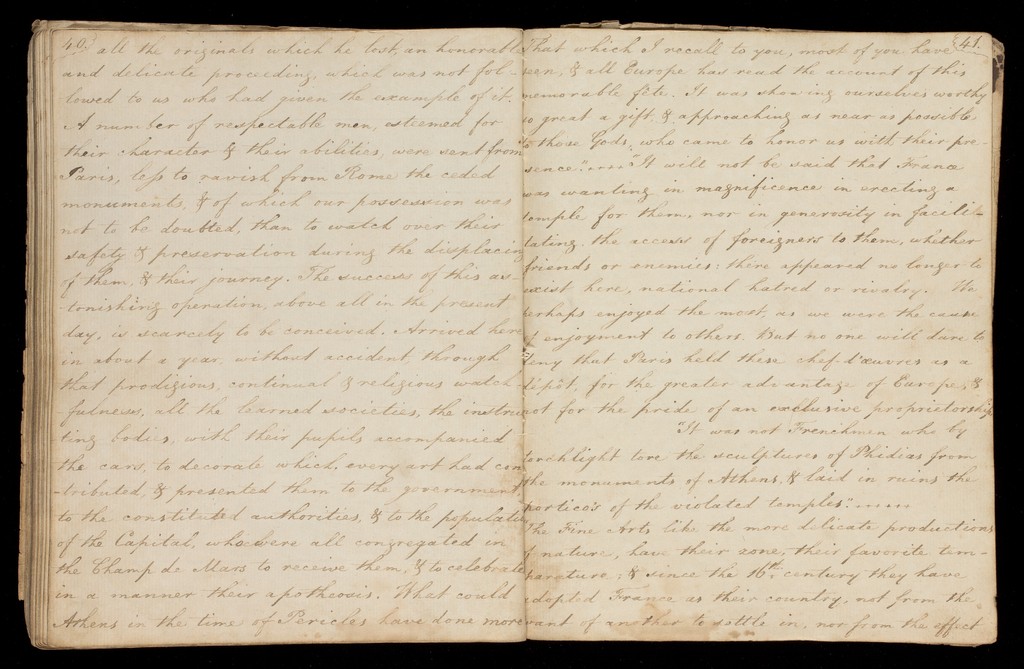 40. all the originals which he lost, an honorable
and delicate proceeding, which was not fol-
-lowed to us who had given the example of it.
A number of respectable men, esteemed for
their character & their abilities, were sent from
Paris, less to ravish from Rome the ceded
monuments, & of which our possession was
not to be doubted, than to watch over their
safety & preservation during the displacing
of them, & their journey. The success of this as-
-tonishing operation, above all in the present
day, is scarcely to be conceived. Arrived here
in about a year, without accident, through
that prodigious, continual & religious watch-
-fulness, all the learned societies, the instruc
ting bodies, with their pupils accompanied
the cars, to decorate which, every art had con
-tributed, & presented them to the government,
to the constituted authorities, & to the populati
of the Capital, who were all congregated in
the Champ de Mars to receive them, & to celebrate
in a manner their apotheosis. What could
Athens in the time of Pericles have done more
41.
That which I recall to you, most of you have
seen, & all Europe has read the account of this
memorable fête. It was showing ourselves worthy
so great a gift, & approaching as near as possible
to those Gods, who came to honor us with their pre-
sence." "It will not be said that France
was wanting in magnificence in erecting a
temple for them, nor in generosity in facili-
tating the access of foreigners to them, whether
friends or enemies: there appeared no longer to
exist here, national hatred or rivalry. We
perhaps enjoyed the most, as we were the cause
of enjoyment to others. But no one will dare to
deny that Paris held these chef d'œuvres as a
depôt, for the greater advantage of Europe, &
not for the pride of an exclusive proprietorship
"It was not Frenchmen who by
torchlight tore the sculptures of Phidias from
the monuments of Athens, & laid in ruins the
portico's of the violated temples."
The Fine Arts, like the more delicate productions
of nature, have their zone, their favorite tem-
parature; & since the 16th. century they have
adopted France as their country, not from the
want of another to settle in, nor from the effect